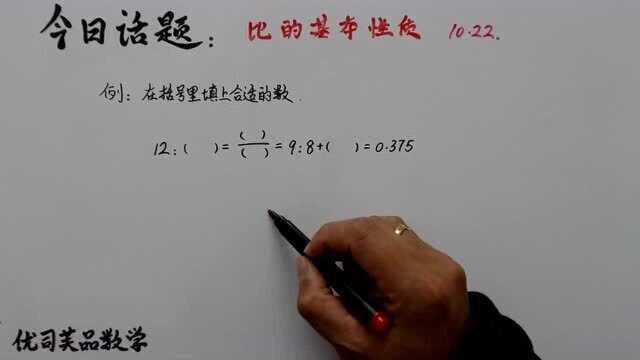 今日话题： 比的基本性质 10.22.
例：在括号里填上合适的数.
12:( )=( )/( )=9:8+( )=0.375
优司芙品数学